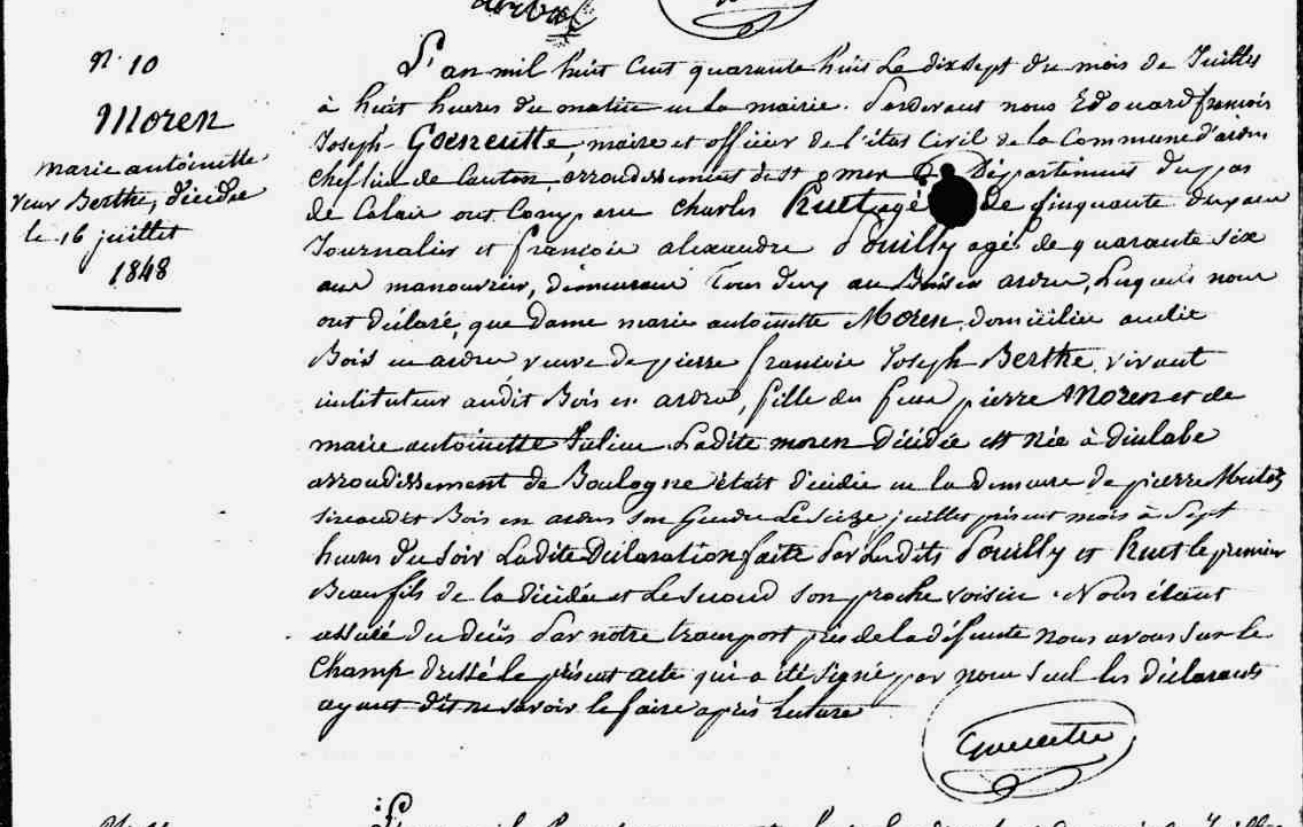 N° 10
Moren
marie antoinette
veuve Berthe, décédée
le 16 juillet
1848
L'an mil huit cent quarante huit le dix sept du mois de Juillet
à huit heures du matin en la mairie. Pardevant nous Edouard françois
Joseph Goeneutte, maire et officier de l'état Civil de la Commune d'ardres
chef lieu de Canton, arrondissement de St omer Département du pas
de Calais ont Comparu Charles Huet agé de cinquante deux ans
Journalier et françois alexandre Pouilly agé de quarante six
ans manouvrier, demeurant tous deux au Bois en ardres, lesquels nous
ont déclaré, que Dame marie antoinette Moren domiciliée audit
Bois en ardres veuve de pierre françois Joseph Berthe, vivant
instituteur audit Bois en ardres, fille du feu pierre Moren et de
marie antoinette Ladite moren décédée est née à
arrondissement de Boulogne était décédée en la demeure de pierre
sise audit Bois en ardres son Gendre le seize juillet présent mois à sept
heures du soir Ladite Déclaration faite Par lesdits Pouilly et Huet le premier
Beau fils de la décédée et le second son proche voisin. Nous étant
assuré du décès Par notre transport près de la défunte nous avons sur le
champ dressé le présent acte qui a été signé par nous seul les déclarants
ayant dit ne savoir le faire après lecture
Goeneutte